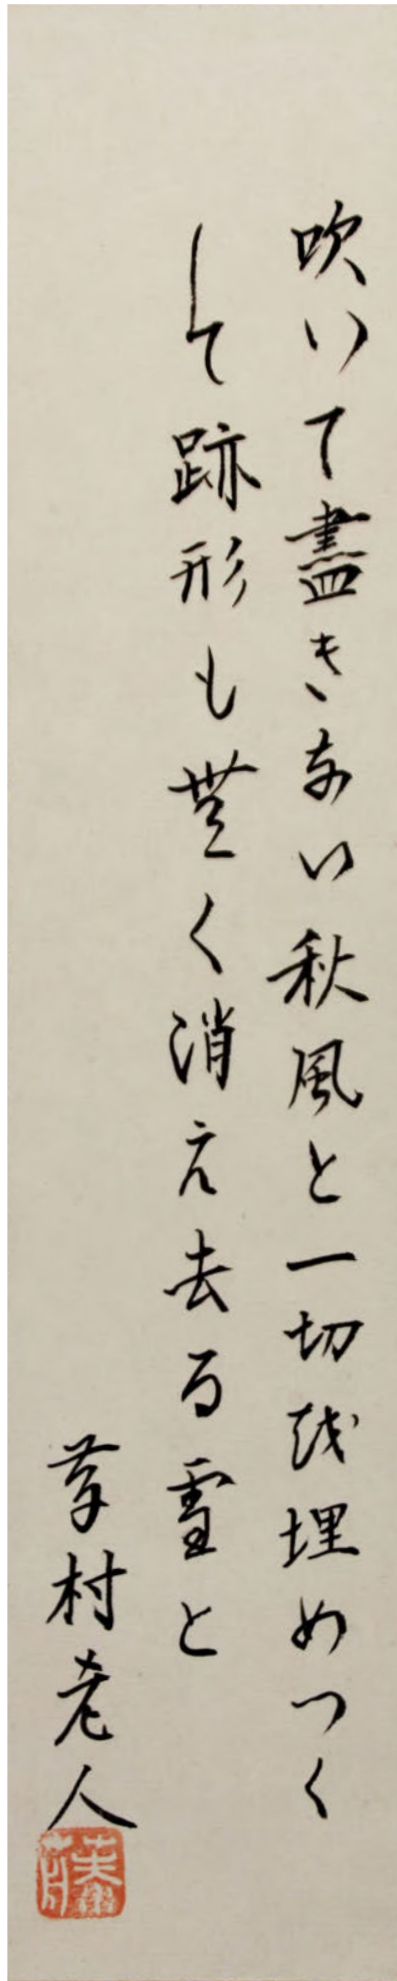 吹いて盡きない秋風と一切を埋めつく
して跡形も無く消え去る雪と
藤村老人
藤